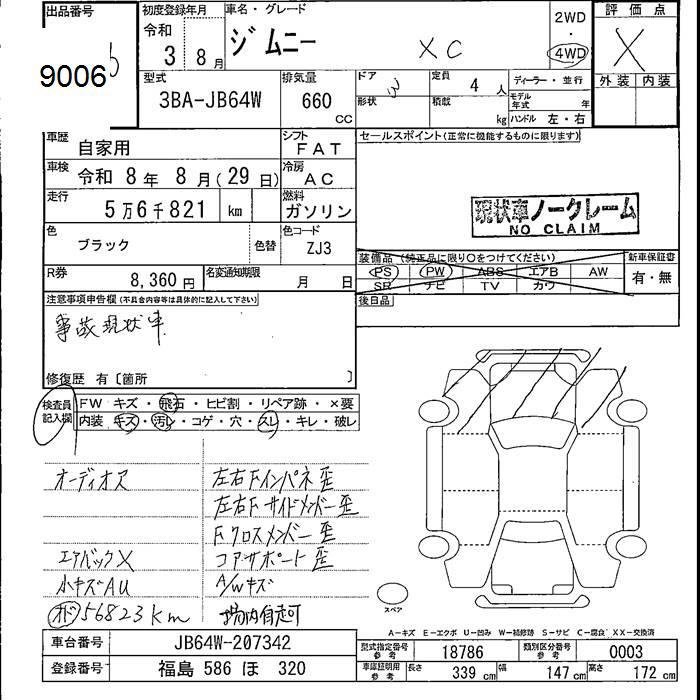 出品番号 初度登録年月 車名・グレード 2WD 評価点
90065 令和 3 8月 ジムニー XC ・ 4WD X
型式 排気量 ドア 3 定員 4人 ディーラー・並行 外装 内装
3BA-JB64W 660 CC 形状 積載 kg モデル年式 年 ハンドル 左・右
車歴 自家用 シフト FAT セールスポイント(正常に機能するものに限ります)
車検 令和 8年 8月(29日) 冷房 AC
走行 5万6千821 km 燃料 ガソリン 現状車ノークレーム
NO CLAIM
色 ブラック 色替 色コード ZJ3
装備品 (純正品に限り○をつけてください) 新車保証書
PS PW ABS エアB AW 有・無
R券 8,360円 名変通知期限 月 日 SR ナビ TV カワ
注意事項申告欄 (不具合内容等は具体的に記入して下さい) 後日品
事故現状車
修復歴 有〔箇所 〕
検査員記入欄 FW キズ・飛石・ヒビ割・リペア跡・×要
内装・キズ・汚レ・コゲ・穴・スレ・キレ・破レ
オーディオス 左右Fインパネ歪
左右Fサイドメンバー歪
Fクロスメンバー歪
エアバックX コアサポート歪
小キズAU A/Wキズ
オド56823km 場内自走可
スペア
A-キズ E-エクボ U-凹み W-補修跡 S-サビ C-腐食 XX-交換済
車台番号 JB64W-207342 型式指定番号参考 18786 類別区分番号参考 0003
登録番号 福島 586 ほ 320 車庫証明用参考 長さ 339 cm 幅 147 cm 高さ 172 cm